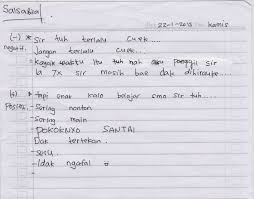 Salsabila
22-1-2015 kamis
(-) * Sir tuh terlalu cuek....
negatif. Jangan terlalu cuek....
Kayak waktu itu tuh nah aku panggil sir
la 7x sir masih bae dak dihirauke...
(+) * tapi enak kalo belajar sma sir tuh....
Positif - Sering nonton
- Sering main
- POKOKNYO SANTAI
Dak tertekan.
- seru..
- Idak ngafal